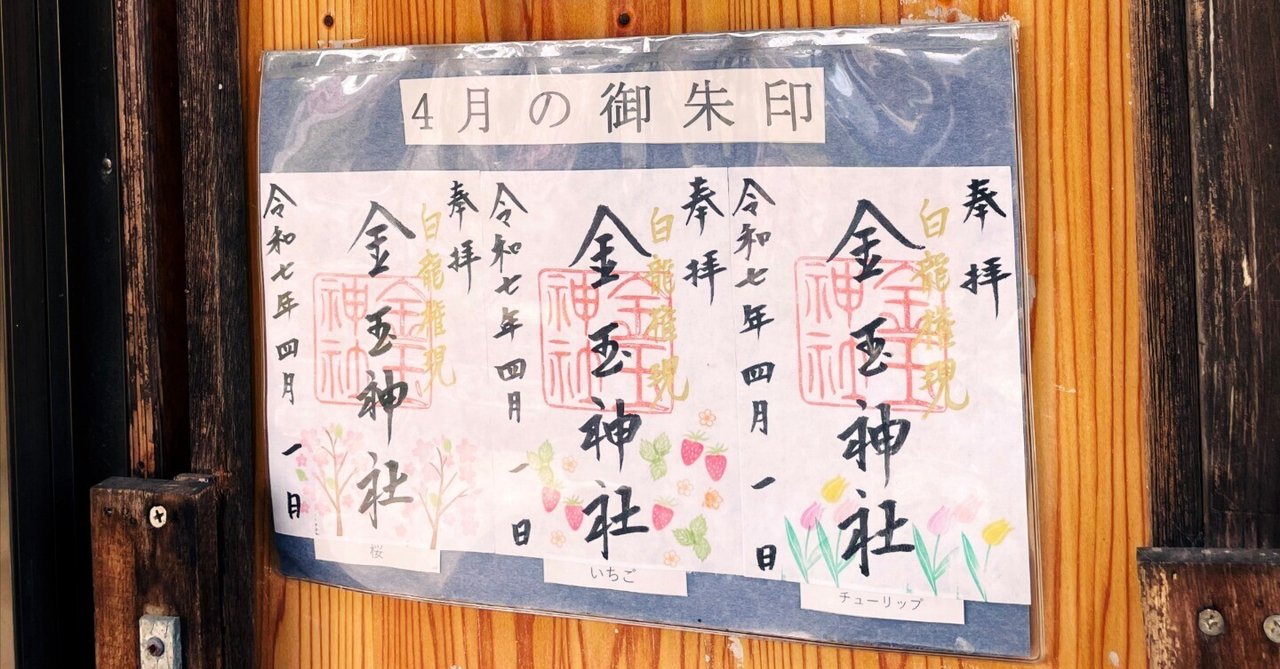 4月の御朱印
奉拝
白龍権現
金玉神社
金玉神社
令和七年四月一日
桜
奉拝
白龍権現
金玉神社
金玉神社
令和七年四月一日
いちご
奉拝
白龍権現
金玉神社
金玉神社
令和七年四月一日
チューリップ